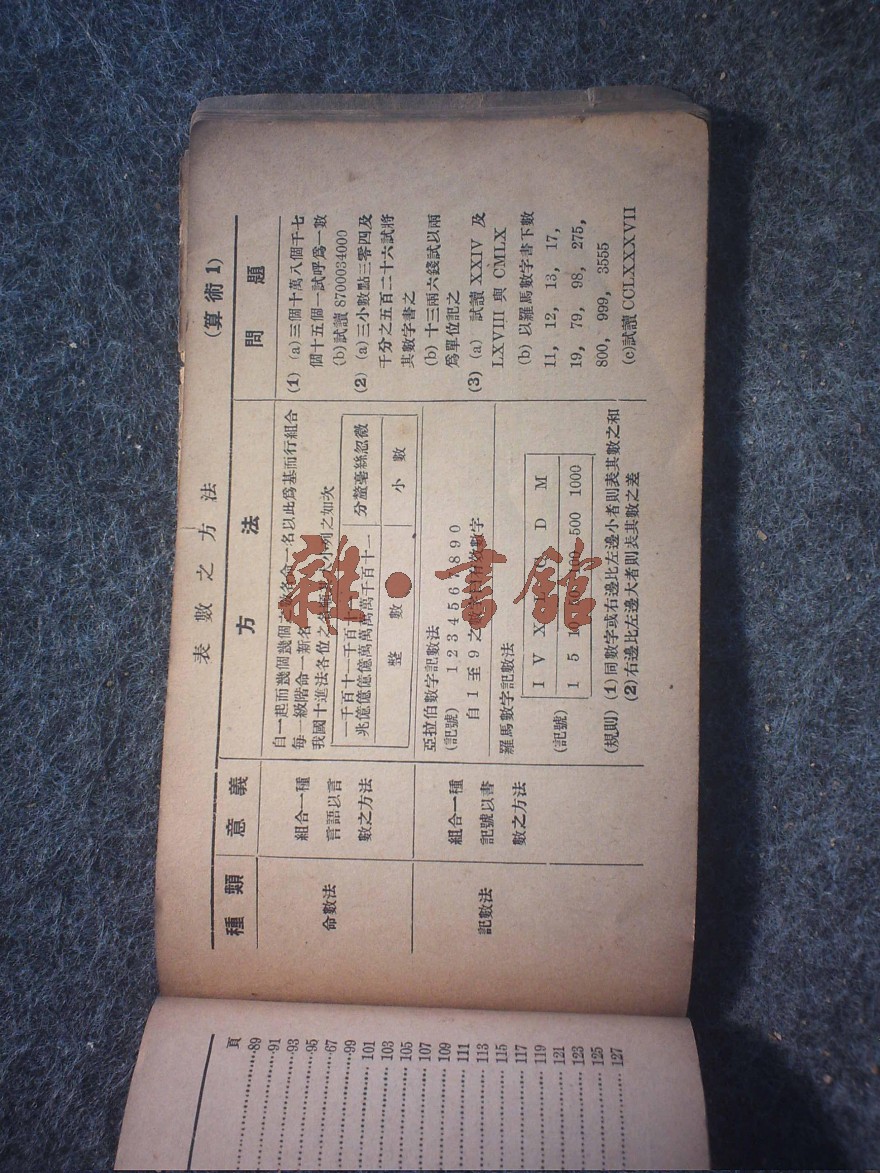 (算術1)
表數之方法
種類 意義 方法 問題
命數法
組合一種
言語以言
數之方法
自一起而幾個幾個之數各命一名以此為基而行組合
每一級階命一新名
我國十進法各位之 小列之如次
一千百十一千百十
兆億億億億萬萬萬萬千百十一
分釐毫絲忽微
整數
小數
(1) (a)三個十萬八個千七
個十五個一試呼爲一數
(b)試讀 8700034000
(2) (a)三小數點三零四及
千分之五百二十六試將
其數字書之
(b) 十三兩六錢試以兩
爲單位記之
記數法
組合一種
記號以書
數之方法
亞拉伯數字記數法
(記號) 1 2 3 4 5 6 7 8 9 0
自1至9之 有效數字
羅馬數字記數法
(記號)
I V X L C D M
1 5 10 50 100 500 1000
(規則) (1)同數字或右邊比左邊小者則表其數之和
(2)右邊比左邊大者則表其數之差
(3) (a) 試讀 XXIV 及
LXVIII 與 CMLX
(b) 以羅馬數字書下數
11, 12, 13, 17,
19, 79, 98, 275,
800, 999, 3555
(c)試讀 CCLXXXVII
頁
89
91
93
95
67
99
101
103
105
107
109
111
113
115
117
119
121
123
125
127